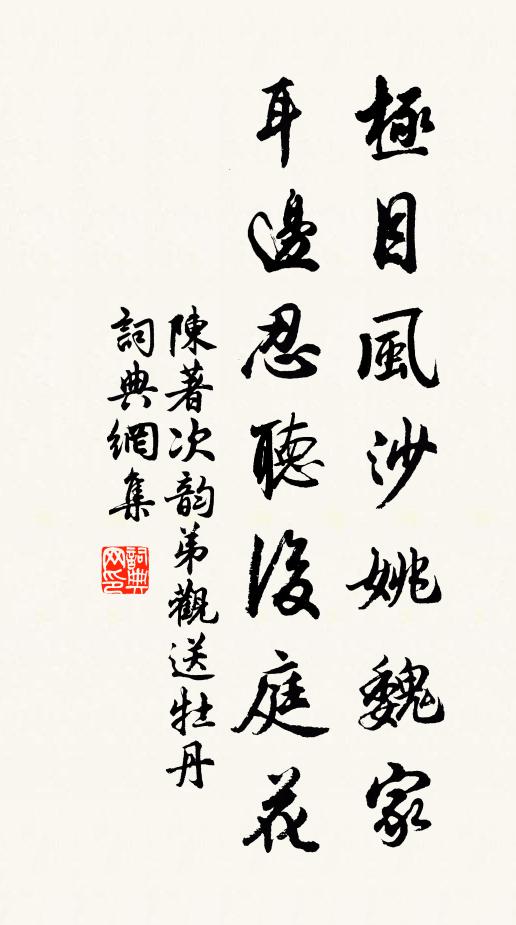 極目風沙姚魏家
耳邊忍聽後庭花
陳著次韵弟觀送牡丹
詞典網集
詞典网印